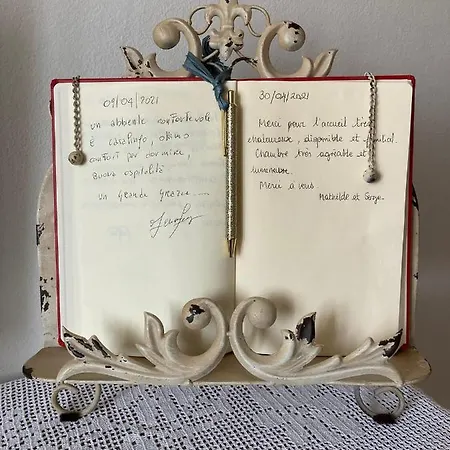 09/04/2021
un abbiente confortevole
E casalingo, ottimo
confort per dormire,
Buona ospitalità
un Grande Grazie
30/04/2021
Merci pour l'accueil très
chaleureux, disponible et familial.
Chambre très agréable et
lumineuse.
Merci à vous
Mathilde et Serge.